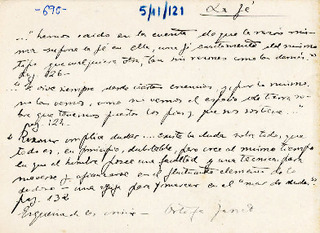 -690-
5/11/121
La fé
..." hemos caido en la cuenta de que la razón mis-
ma supone la fé en ella, una fé exactamente del mismo
tipo que cualquiera otra, tan sin razones como las demás."
pag. 126-
" Se vive siempre desde ciertas creencias y, por lo mismo,
no las vemos, como no vemos el espacio de tierra so-
bre que tenemos puestos los pies, que nos sostiene..."
pag. 127
" Pensar implica dudar... existe la duda sobre todo, que
todo es, en principio, dubitable, pero cree al mismo tiempo
en que el hombre posee una facultad y una técnica para
moverse y afianzarse en el fluctuante elemento de lo
dudoso - una para en el "mar de dudas".
pag. 132
Esquema de las crisis - Ortega Gasset